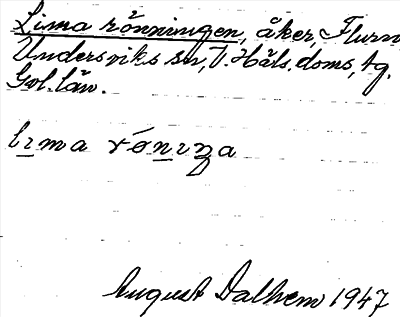 Lima rönningen, åker, Flurn
Undersviks sn, V. Häls. doms. tg.
Gvl. län.
lima rónıŋa
August Dalhem 1947